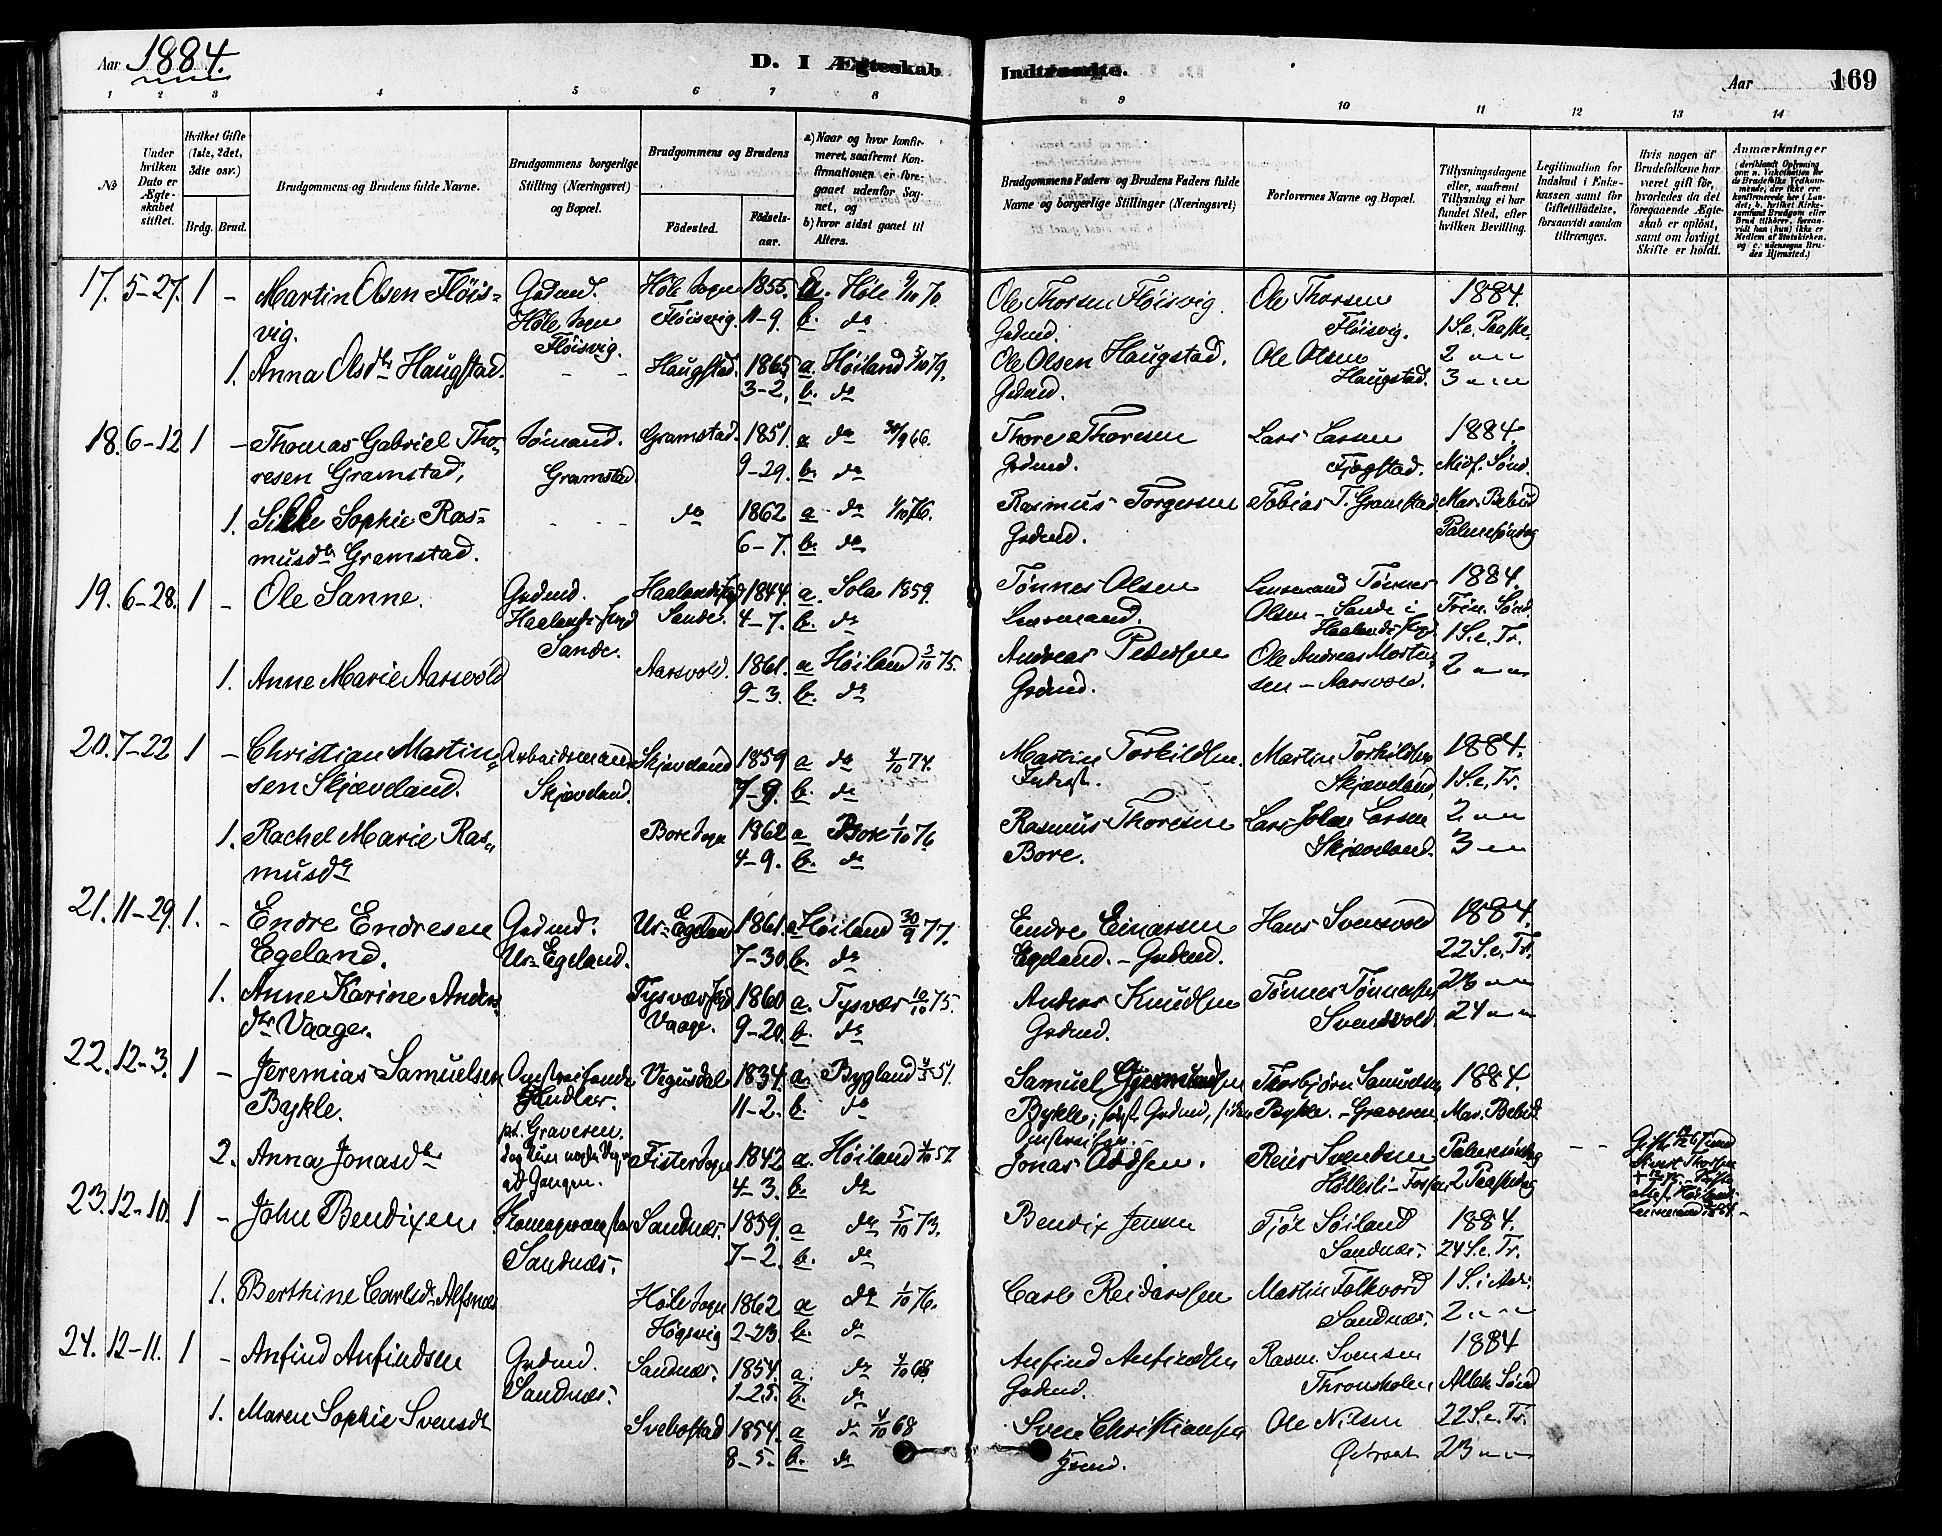 Aar 1884.
D. I Ægteskab Indtraadte.
Aar 169
1 2 3 4 5 6 7 8 9 10 11 12 13 14
No
Under hvilken Dato er Ægteskabet stiftet.
Hvilket Gifte (1ste, 2det, 3die osv.)
Brdg. Brud.
Brudgommens og Brudens fulde Navne.
Brudgommens borgerlige Stilling (Næringsvei) og Bopæl.
Brudgommens og Brudens
Födested. Födselsaar.
a) Naar og hvor konfirmeret, saafremt Konfirmationen er foregaaet udenfor Sognet, og
b) hvor sidst gaaet til Alters.
Brudgommens Faders og Brudens Faders fulde Navne og borgerlige Stillinger (Næringsvei)
Forlovernes Navne og Bopæl.
Tillysningsdagene eller, saafremt Tillysning ei har fundet Sted, efter hvilken Bevilling.
Legitimation for Indskud i Enkekassen samt for Giftetilladelse, forsaavidt saadan tiltrænges.
Hvis nogen af Brudefolkene har været gift för, hvorledes da det foregaaende Ægteskab er oplöst, samt om lovligt Skifte er holdt.
Anmærkninger
17. 5-27. 1 - Martin Olsen Flöis- Gdmd. Höle Sogn 1855 a. Höle 9/10 70. Ole Thorsen Flöisvig. Ole Thorsen 1884.
vig. Höle Sogn Flöisvig. 11-9. b. do Gdmd. Flöisvig. 1 S. e. Paaske.
Flöisvig.
1. Anna Olsdtr Haugstad. - - Haugstad. 1865 a. Höiland 5/10 79. Ole Olsen Haugstad. Ole Olsen 2 " "
3-2. b. do Gdmd. Haugstad. 3 " "
18. 6-12 1 - Thomas Gabriel Tho- Sömand. Gramstad. 1851. a do 30/9 66. Thore Thoresen Lars Larsen 1884.
resen Gramstad. Gramstad 9-29. b. do Gdmd. Fjogstad. Midf. Sönd.
1. Sikke Sophie Ras- - - - do 1862 a do 1/10 76. Rasmus Torgersen Tobias T. Gramstad Mar. Bebud
musdtr Gramstad. 6-7. b. do Gdmd. Palmesöndag
19. 6-28. 1 - Ole Sanne. Gdmd. 1844. a. Sola 1859. Tönnes Olsen Tönnes 1884.
Sande. 4-7. b. do Olsen - Sande i Trin. Sönd.
Sande. 1 S. e. Tr.
1. Anne Marie Aarsvold Aarsvold. 1861. a Höiland 3/10 75. Andreas Pedersen Ole Andreas Morten- 2 " "
9-3. b. do Gdmd. sen - Aarsvold.
20. 7-22 1 - Christian Martin- Arbeidsmand Skjæveland 1859 a do 4/10 74. Martin Torkildsen. Martin Torkildsen 1884.
sen Skjæveland. Skjæveland. 7-9. b. do Skjæveland. 1 S. e. Tr.
1. Rachel Marie Ras- Bore Sogn 1862 a Bore 1/10 76 Rasmus Thoresen Lars Johan Larsen 2 " "
musdtr 4-9. b. do Bore. Skjæveland. 3 " "
21. 11-29. 1. - Endre Endresen Gdmd. Ur-Egeland 1861. a Höiland 30/9 77. Endre Einarsen Hans Svensvold 1884.
Egeland. Ur-Egeland. 7-30. b. do Egeland. - Gdmd. 22 S. e. Tr.
1. Anne Karine Anders- Tysvær 1860 a. Tysvær 10/10 75. Anders Knudsen Tönnes Tönnessen 23 " "
dtr Vaage. Vaage. 9-20. b. do Gdmd. Svendsvold. 24 " "
22. 12-3. 1 - Jeremias Samuelsen Omstreifende Vegusdal 1834. a. Bygland 51. Samuel Thorbjörn Samuelsen 1884.
Bykle. Handler. 11-2. b. do Bykle; Gdmd, Bykle. - Graveren, Mar. Bebud.
pt. Graveren.
2. Anna Jonasdtr Fister Sogn 1842 a. Höiland 4/10 57. Jonas Oddsen. Reier Svendsen Palmesöndag - - Gift
4-3. b. do Hölleli - 2 Paaskedag
23. 12-10. 1 - John Bendixen Sandnæs. 1859. a do 5/10 73. Bendix Jensen Tjöl Söiland 1884.
Sandnæs. 7-2. b. do Sandnæs. 24 S. e. Tr.
1. Berthine Carlsdtr Alfsnæs Höle Sogn 1862 a do 1/10 76. Carl Reidarssen Martin Folkvord 1 S. i Adv.
Högsvig 2-23. b. do Sandnæs. 2 " "
24. 12-11. 1 - Anfind Anfindsen Gdmd. Sandnæs. 1854. a. do 4/10 68. Anfind Anfindsen Rasm. Svensen 1884
Sandnæs. 1-25. b. do Gdmd. Thronsholen Alleh. Sönd
1. Maren Sophie Svensdtr Svebostad 1854. a do 4/10 68 Sven Christiansen Ole Nilsen 22 S. e. Tr.
8-5. b. do 23 " "